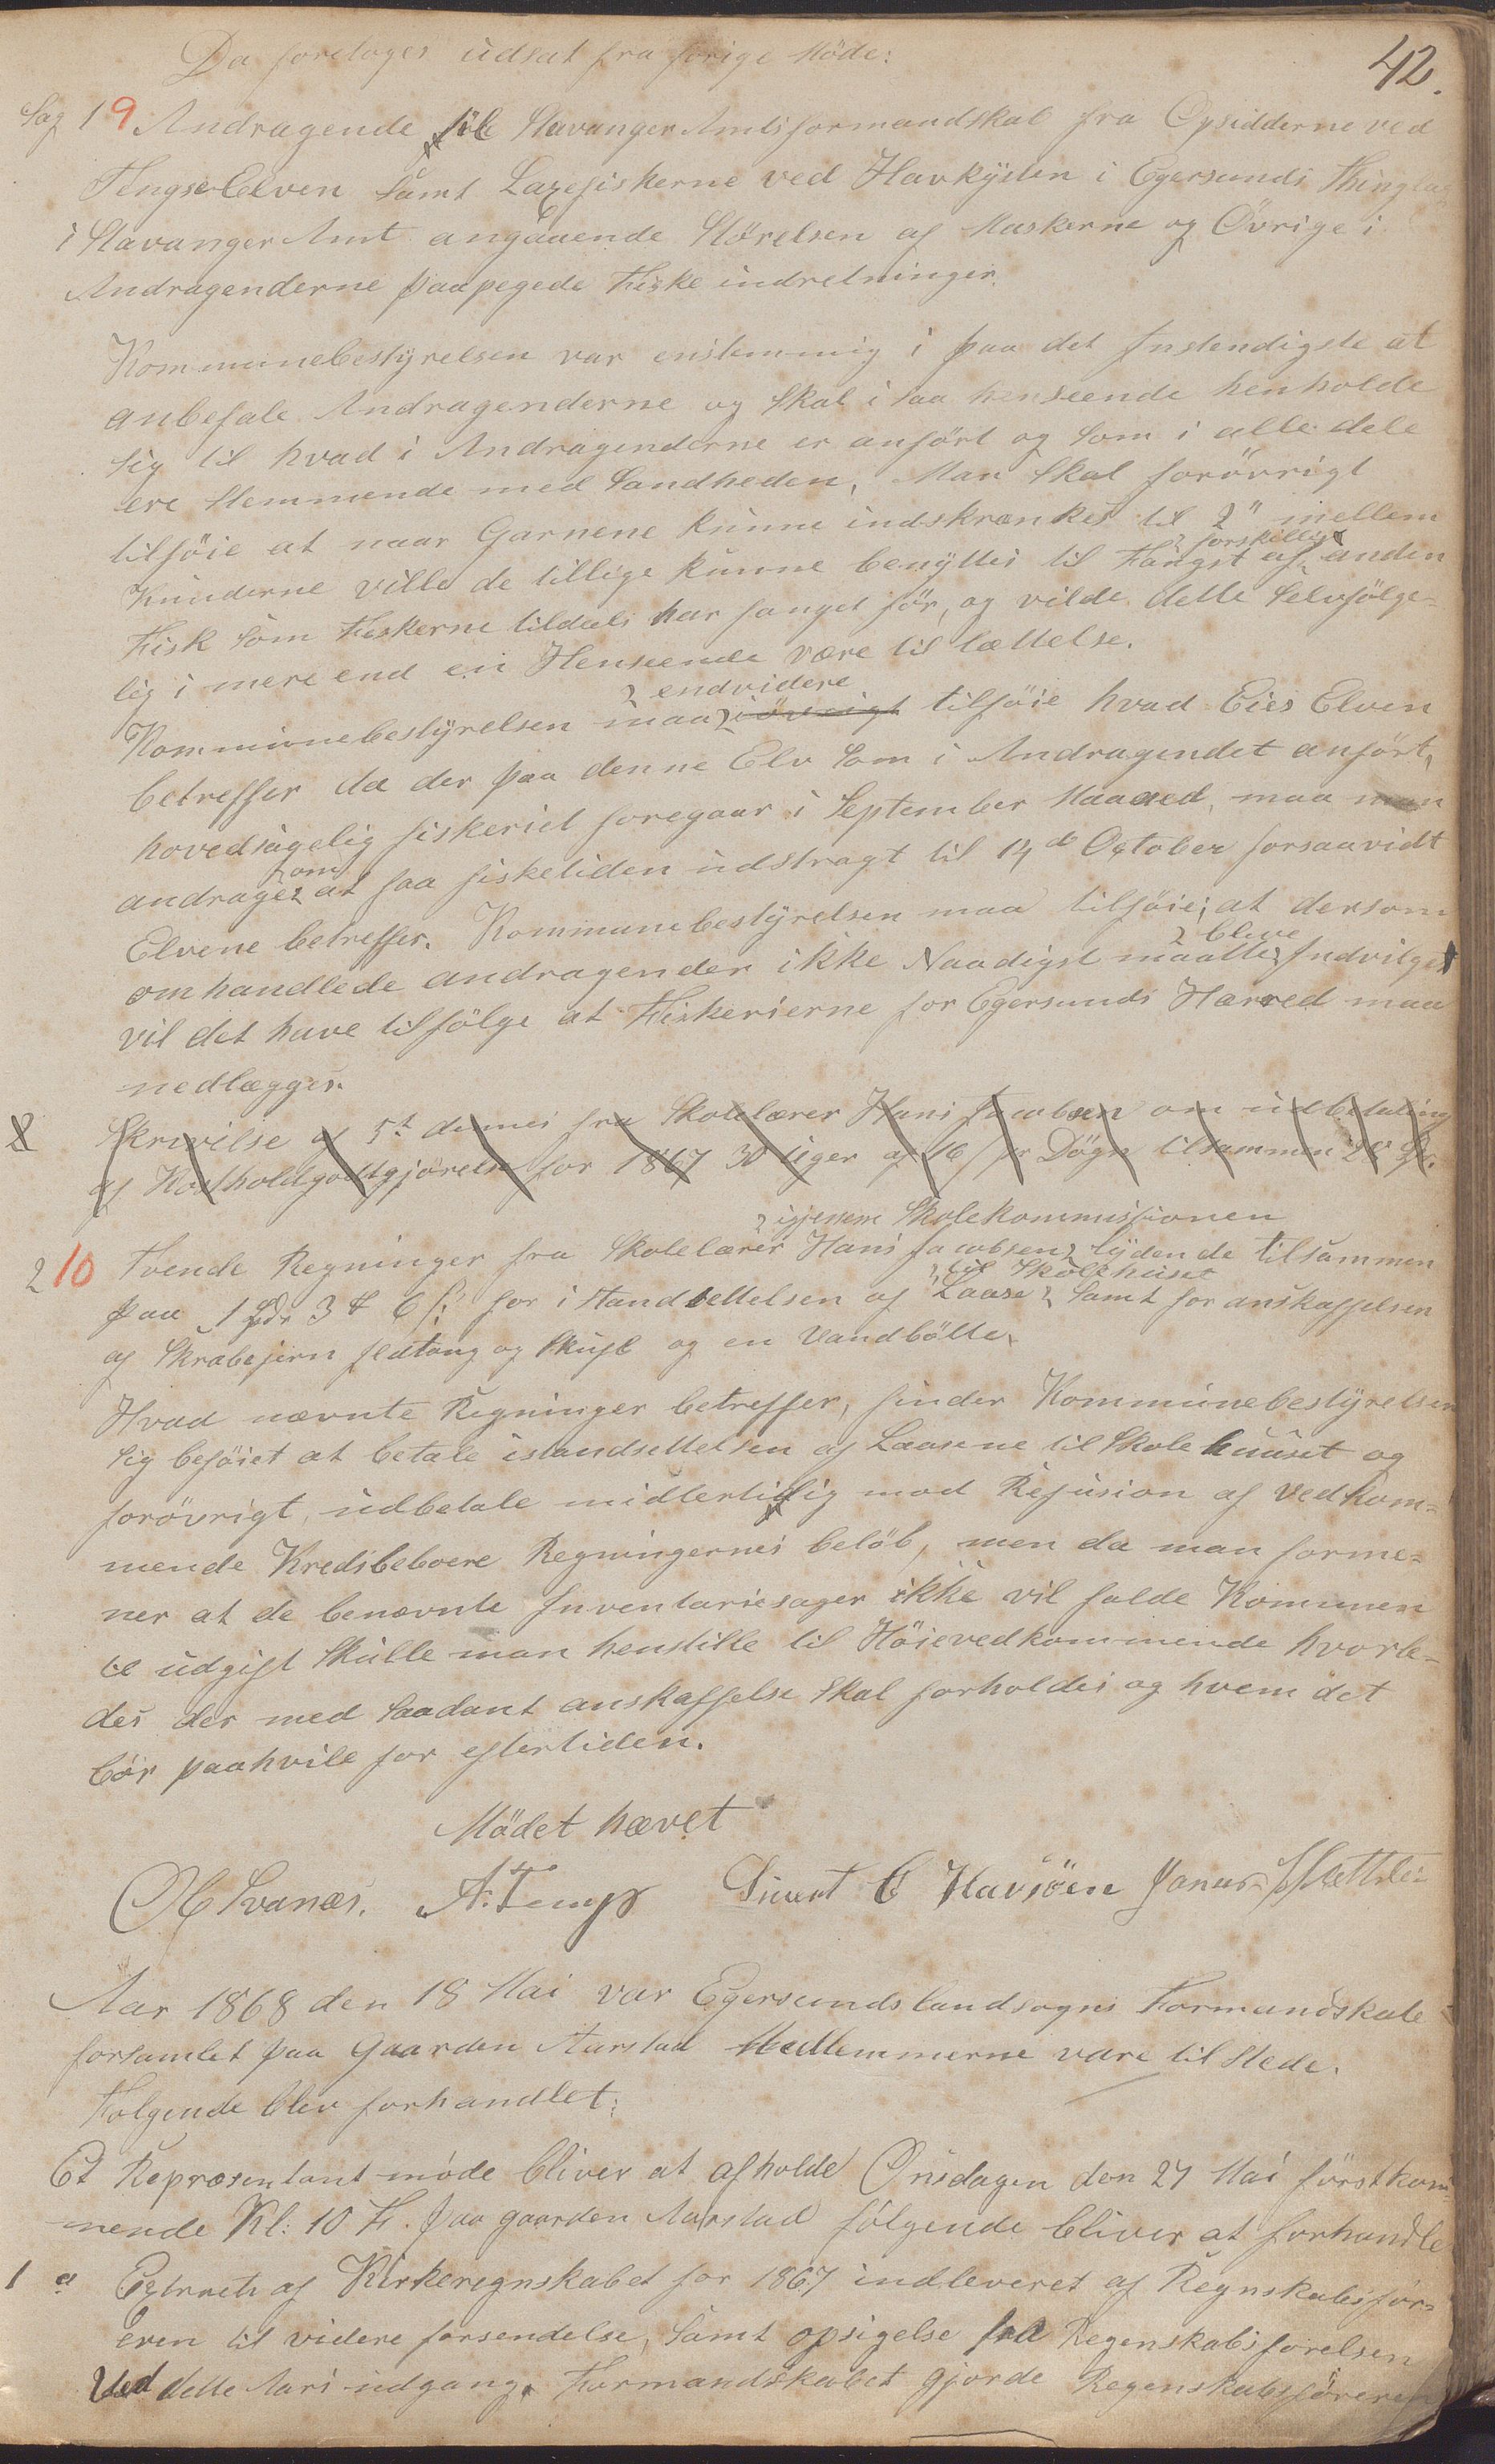 42.
Da foretoges udsat fra forige Möde:
Sag 19 Andragende til Stavanger Amtsformandskab fra Opsidderne ved
Tengs Elven samt Laxefiskerne ved Havkysten i Egersunds Thinglag
i Stavanger Amt angaaende Störelsen af Maskerne og Övrige i
Andragenderne paapegede Fiske indretninger.
Kommunebestyrelsen var enstemmig i paa det Instendigste at
anbefale Andragenderne og Skal i saa henseende henholde
sig til hvad i Andragenderne er anfört og som i alle dele
ere Stemmende med Sandheden, Man Skal forövrigt
tilföie at naar Garnene kunne indskrænkes til 2" mellem
Knuderne ville de tillige kunne benyttes til Fangst af forskellig anden
Fisk som Fiskerne tildels har fanget för, og vilde dette Selvfölge-
lig i mere end en Henseende være til lættelse.
Kommunebestyrelsen maa endvidere iövrigt tilföie hvad Eies Elven
betreffer da der paa denne Elv Som i Andragendet anfört,
hovedsagelig fiskeriet foregaar i September Maaned, maa man
andrage om at faa fisketiden udstragt til 14de October forsaavidt
Elvene betreffer. Kommunebestyrelsen maa tilföie; at dersom
omhandlede andragender ikke Naadigst maatte blive Indvilget
vil det have tilfölge at Fiskerierne for Egersunds Herred maa
nedlægges.
2 Skrivilse af 5t dennes fra Skolelærer Hans Jacobsen om udbetaling
af Kostholdgodtgjörelse for 1867 30 Uger af 16 pr Dögn tilsammen 28
2 10 Tvende Regninger fra Skolelærer Hans Jacobsen igjennem Skolekommissionen lydende tilsammen
paa 1 Spd 3 6 for i Standsettelsen af Laase til Skolehuset Samt for anskaffelsen
af Skrabejern ildtang og Skuft og en Vandbötte.
Hvad nævnte Regninger betreffer, finder Kommunebestyrelsen
sig beföiet at betale istandsettelsen af Laasene til Skolehuuset og
forövrigt, udbetale midlertidig mod Refusion af Vedkom-
mende Kredsbeboere Regningernes belöb, men da man forme-
ner at de benævnte Inventariesager ikke vil falde Kommunen
til udgift Skulle man henstille til Höievedkommende hvorle-
des der med Saadant anskaffelse Skal forholdes og hvem det
bör paahvile for eftertiden.
Mödet hævet
O H Svanæs. A. Tengs Sivert E Havsöen Jonas Slettebö
Aar 1868 den 18 Mai var Egersundslandsogns Formandskab
forsamlet paa Gaarden Aarstad Medlemmerne vare til Stede.
Folgende blev forhandlet:
Et Repræsentantmöde bliver at afholde Onsdagen den 27 Mai förstkom-
mende Kl: 10 F. paa gaarden Aarstad fölgende bliver at forhandle
1 a Extract af Kirkeregnskabet for 1867 indleveret af Regnskabsför-
eren til videre forsendelse, Samt opsigelse fra Regenskabsförelsen
Ved dette Aars udgang. Formandskabet gjorde Regenskabsföreren